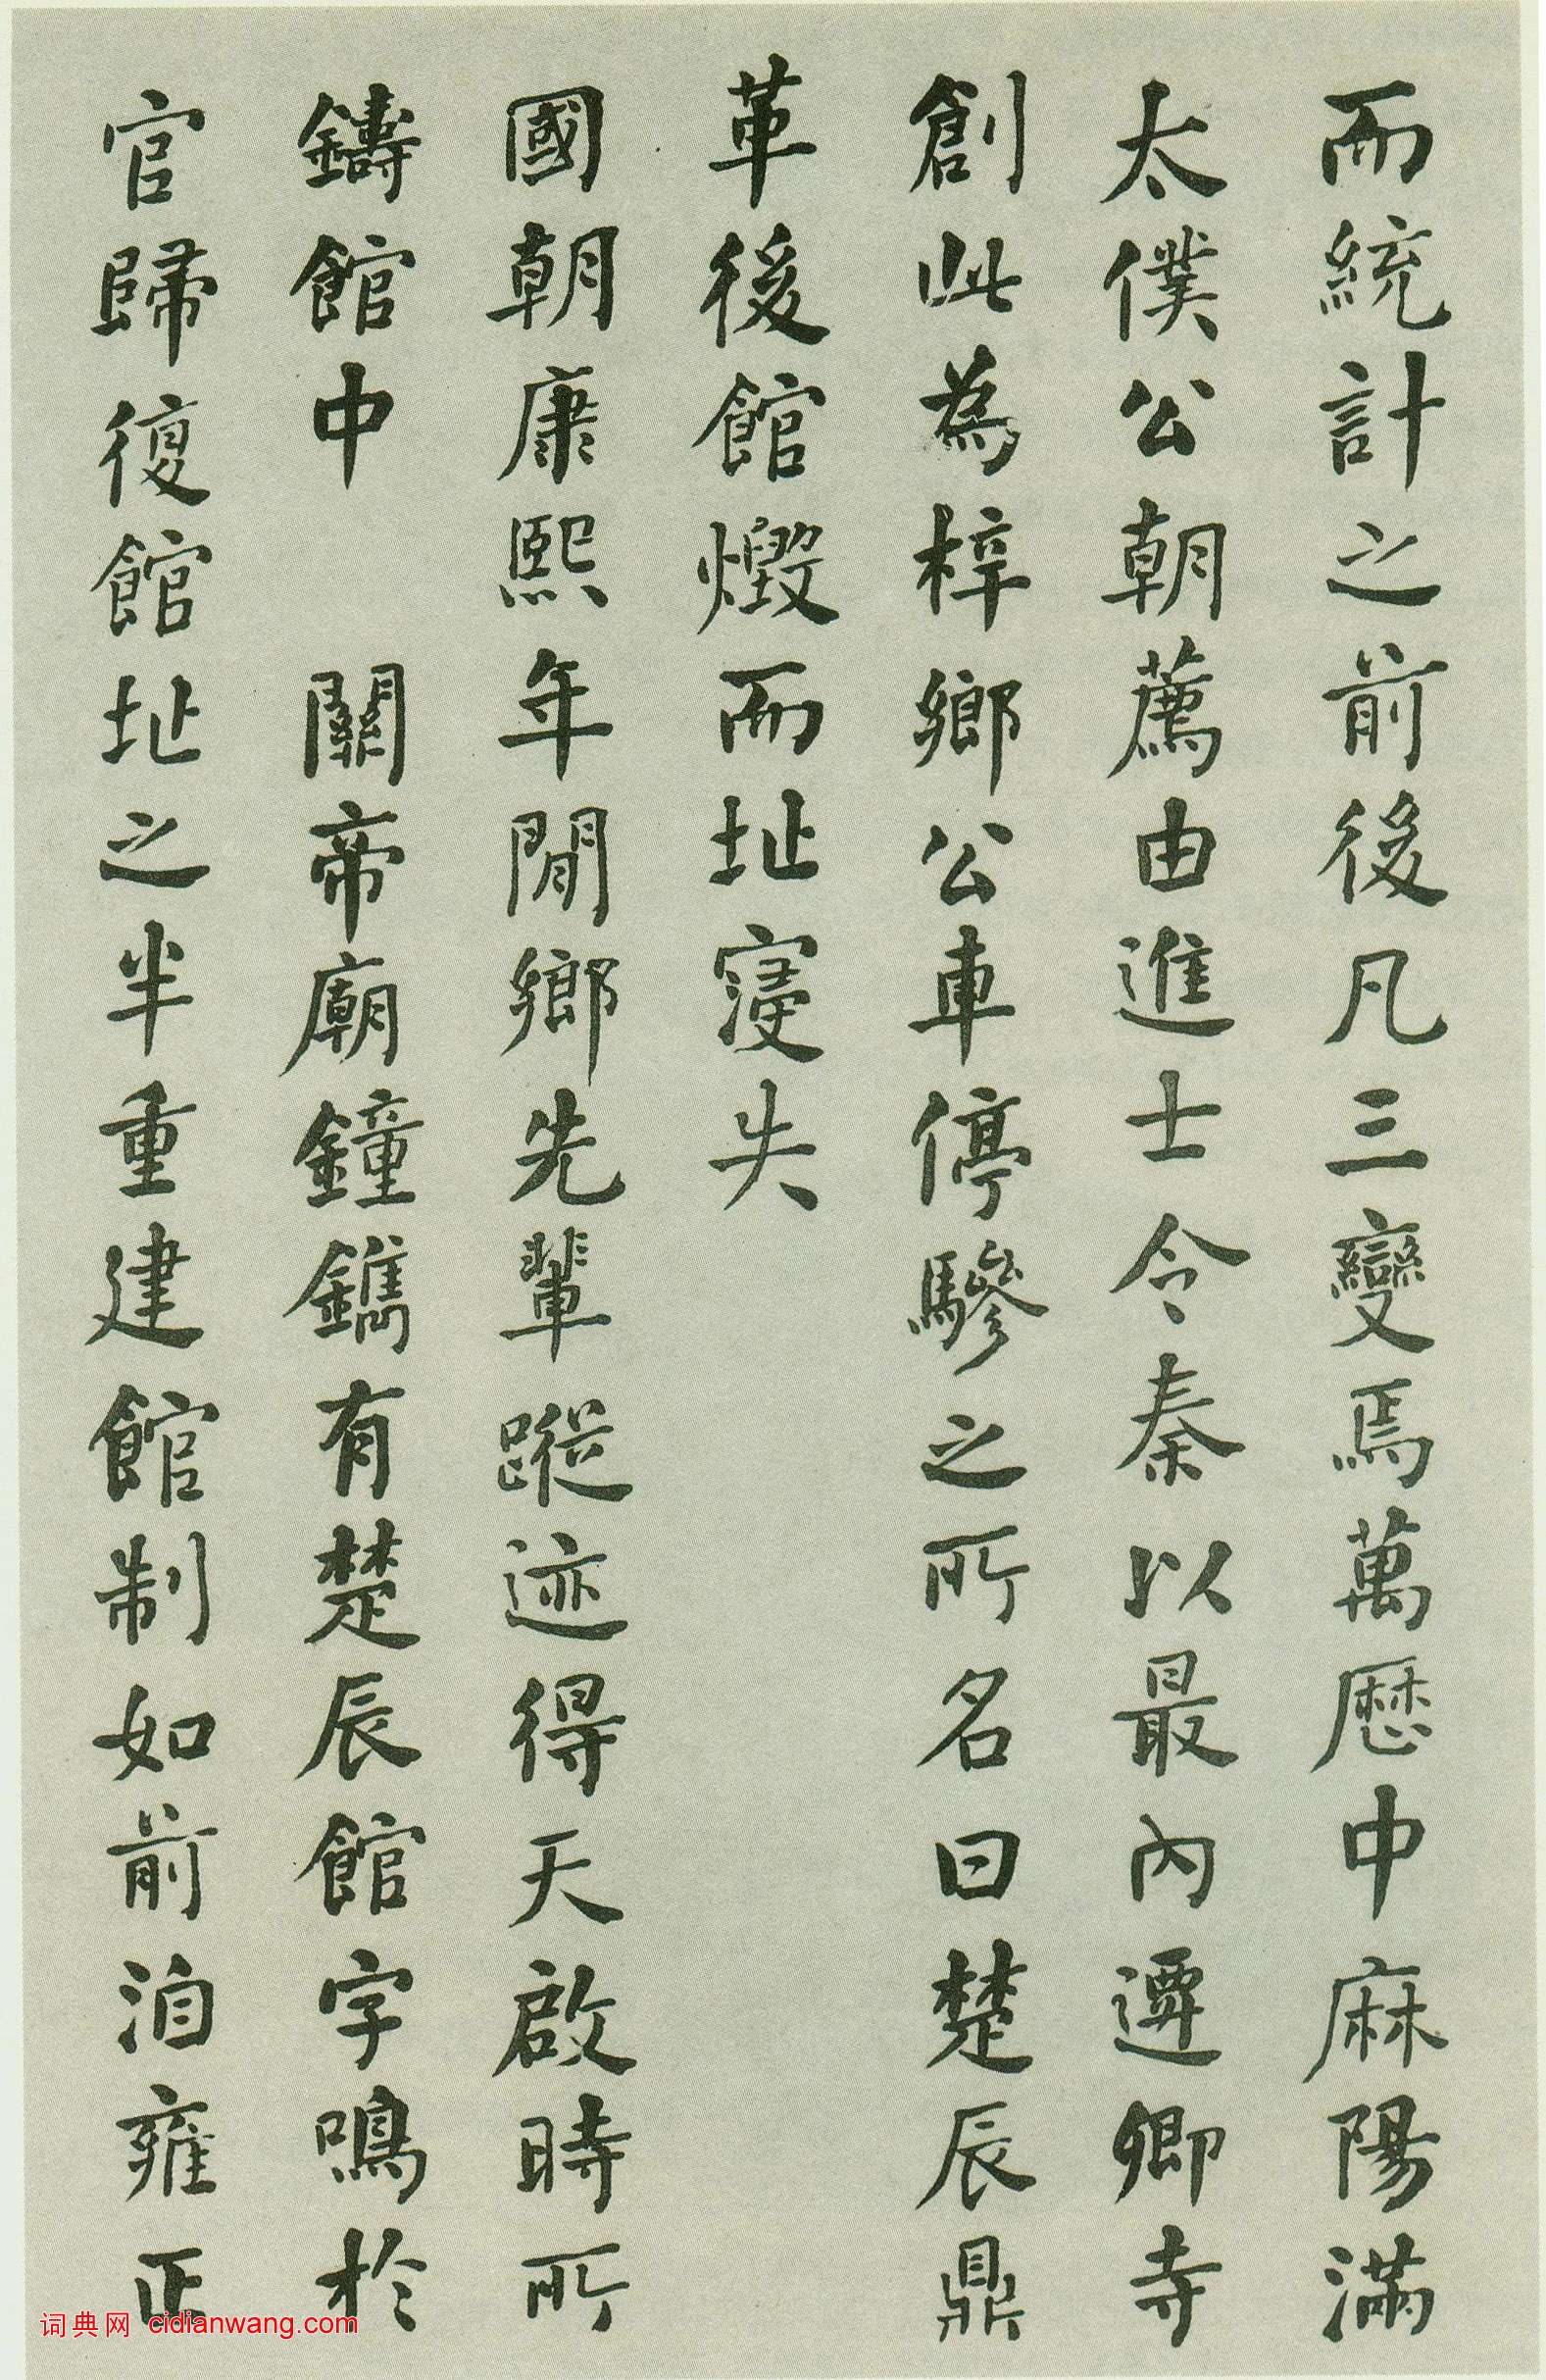 而統計之前後凡三變焉萬歷中麻陽滿
太僕公朝薦由進士令秦以最內遷卿寺
創此為梓鄉公車停驂之所名曰楚辰鼎
革後館燬而址寖失
國朝康熙年閒鄉先輩蹤迹得天啟時所
鑄館中 關帝廟鐘鐫有楚辰館字鳴於
官歸復館址之半重建館制如前洎雍正
词典网 cidianwang.com